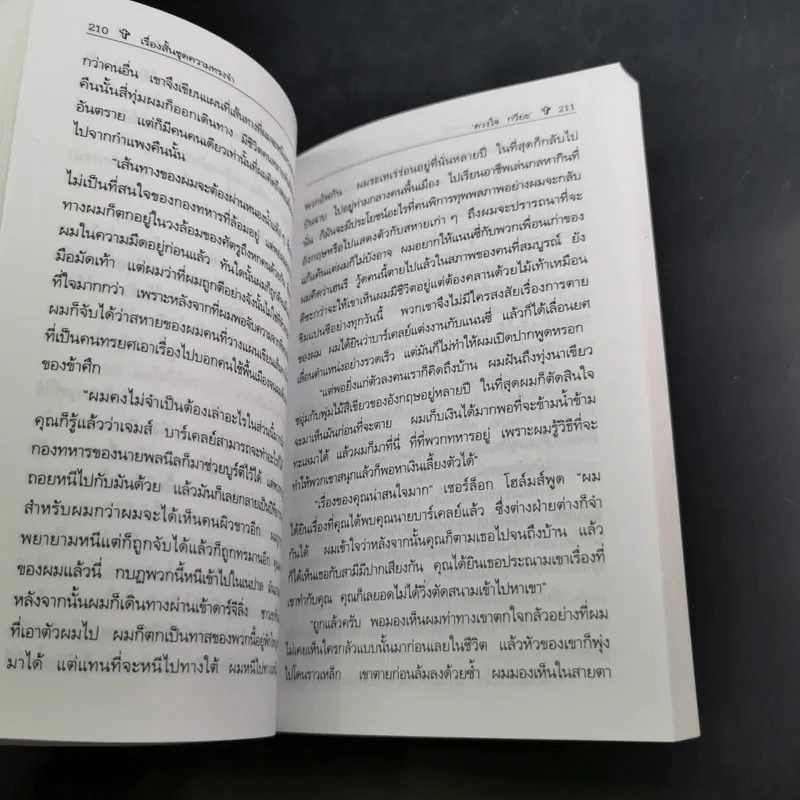 210 เรื่องสั้นชุดความทรงจำ
กว่าคนอื่น เขาจึงเขียนแผนที่เส้นทางที่ผมจะ
คืนนั้นสี่ทุ่มผมก็ออกเดินทาง มีชีวิตคน
อันตราย แต่ก็มีคนคนเดียวเท่านั้นที่ผมคิดถึง
ไปจากกำแพงคืนนั้น
"เส้นทางของผมจะต้องผ่านหนองน้ำแห้ง
ไม่เป็นที่สนใจของกองทหารที่ล้อมอยู่ แต่
ทางผมก็ตกอยู่ในวงล้อมของศัตรูถึงหกคนด้วยกัน
ผมในความมืดอยู่ก่อนแล้ว ทันใดนั้นผมก็ถูกตี
มือมัดเท้า แต่ผมว่าที่ผมถูกตีอย่างจังนั้นไม่ใช่
ที่ใจมากกว่า เพราะหลังจากที่ผมพอจับความ
ผมก็จับได้ว่าสหายของผมคนที่วางแผนเขียน
ที่เป็นคนทรยศเอาเรื่องไปบอกคนใช้พื้นเมือง
ของข้าศึก
"ผมคงไม่จำเป็นต้องเล่าอะไรในส่วนนี้
คุณก็รู้แล้วว่าเจมส์ บาร์เคลย์สามารถจะทำอะไรก็ได้
กองทหารของนายพลนีลก็มาช่วยบูร์ตีไว้ได้ แต่พวก
ถอยหนีไปกับมันด้วย แล้วมันก็เลยกลายเป็น
สำหรับผมกว่าผมจะได้เห็นคนผิวขาวอีก ผมถูก
พยายามหนีแต่ก็ถูกจับได้แล้วก็ถูกทรมานอีก
ของผมแล้วนี่ กบฏพวกนี้หนีเข้าไปในเนปาล
หลังจากนั้นผมก็เดินทางผ่านเข้าดาร์จีลิ่ง ชาว
ที่เอาตัวผมไป ผมก็ตกเป็นทาสของพวกนี้อยู่พัก
มาได้ แต่แทนที่จะหนีไปทางใต้ ผมหนีไปทาง
'ดวงใจ กวียะ' 211
พวกอัฟกัน ผมระเหเร่ร่อนอยู่ที่นั่นหลายปี ในที่สุดก็กลับไป
ปันจาบ ไปอยู่ท่ามกลางคนพื้นเมือง ไปเรียนอาชีพเล่นกลหากินที่
นั่น ก็มันจะมีประโยชน์อะไรที่คนพิการทุพพลภาพอย่างผมจะกลับ
อังกฤษหรือไปแสดงตัวกับสหายเก่า ๆ ถึงผมจะปรารถนาที่จะ
แก้แค้นแต่ผมก็ไม่บังอาจ ผมอยากให้แนนซี่กับพวกเพื่อนเก่าของ
ผมคิดว่าเฮนรี วู้ดคนนี้ตายไปแล้วในสภาพของคนที่สมบูรณ์ ยัง
ดีซะกว่าจะให้เขาเห็นผมมีชีวิตอยู่แต่ต้องคลานด้วยไม้เท้าเหมือน
ชิมแปนซีอย่างทุกวันนี้ พวกเขาจึงไม่มีใครสงสัยเรื่องการตาย
ของผม ผมได้ยินว่าบาร์เคลย์แต่งงานกับแนนซี่ แล้วก็ได้เลื่อนยศ
เลื่อนตำแหน่งอย่างรวดเร็ว แต่มันก็ไม่ทำให้ผมเปิดปากพูดหรอก
"แต่พอยิ่งแก่ตัวลงคนเราก็คิดถึงบ้าน ผมฝันถึงทุ่งนาเขียว
ชอุ่มกับพุ่มไม้สีเขียวของอังกฤษอยู่หลายปี ในที่สุดผมก็ตัดสินใจ
จะมาเห็นมันก่อนที่จะตาย ผมเก็บเงินได้มากพอที่จะข้ามน้ำข้าม
ทะเลมาได้ แล้วผมก็มาที่นี่ ที่ที่พวกทหารอยู่ เพราะผมรู้วิธีที่จะ
ทำให้พวกเขาสนุกแล้วก็พอหาเงินเลี้ยงตัวได้"
"เรื่องของคุณน่าสนใจมาก" เชอร์ล็อก โฮล์มส์พูด "ผม
ได้ยินเรื่องที่คุณได้พบคุณนายบาร์เคลย์แล้ว ซึ่งต่างฝ่ายต่างก็จำ
กันได้ ผมเข้าใจว่าหลังจากนั้นคุณก็ตามเธอไปจนถึงบ้าน แล้ว
ก็ได้เห็นเธอกับสามีมีปากเสียงกัน คุณได้ยินเธอประณามเขาเรื่องที่
เขาทำกับคุณ คุณก็เลยอดไม่ได้วิ่งตัดสนามเข้าไปหาเขา"
"ถูกแล้วครับ พอมองเห็นผมท่าทางเขาตกใจกลัวอย่างที่ผม
ไม่เคยเห็นใครกลัวแบบนั้นมาก่อนเลยในชีวิต แล้วหัวของเขาก็พุ่ง
ไปโดนราวเหล็ก เขาตายก่อนล้มลงด้วยซ้ำ ผมมองเห็นในสายตา